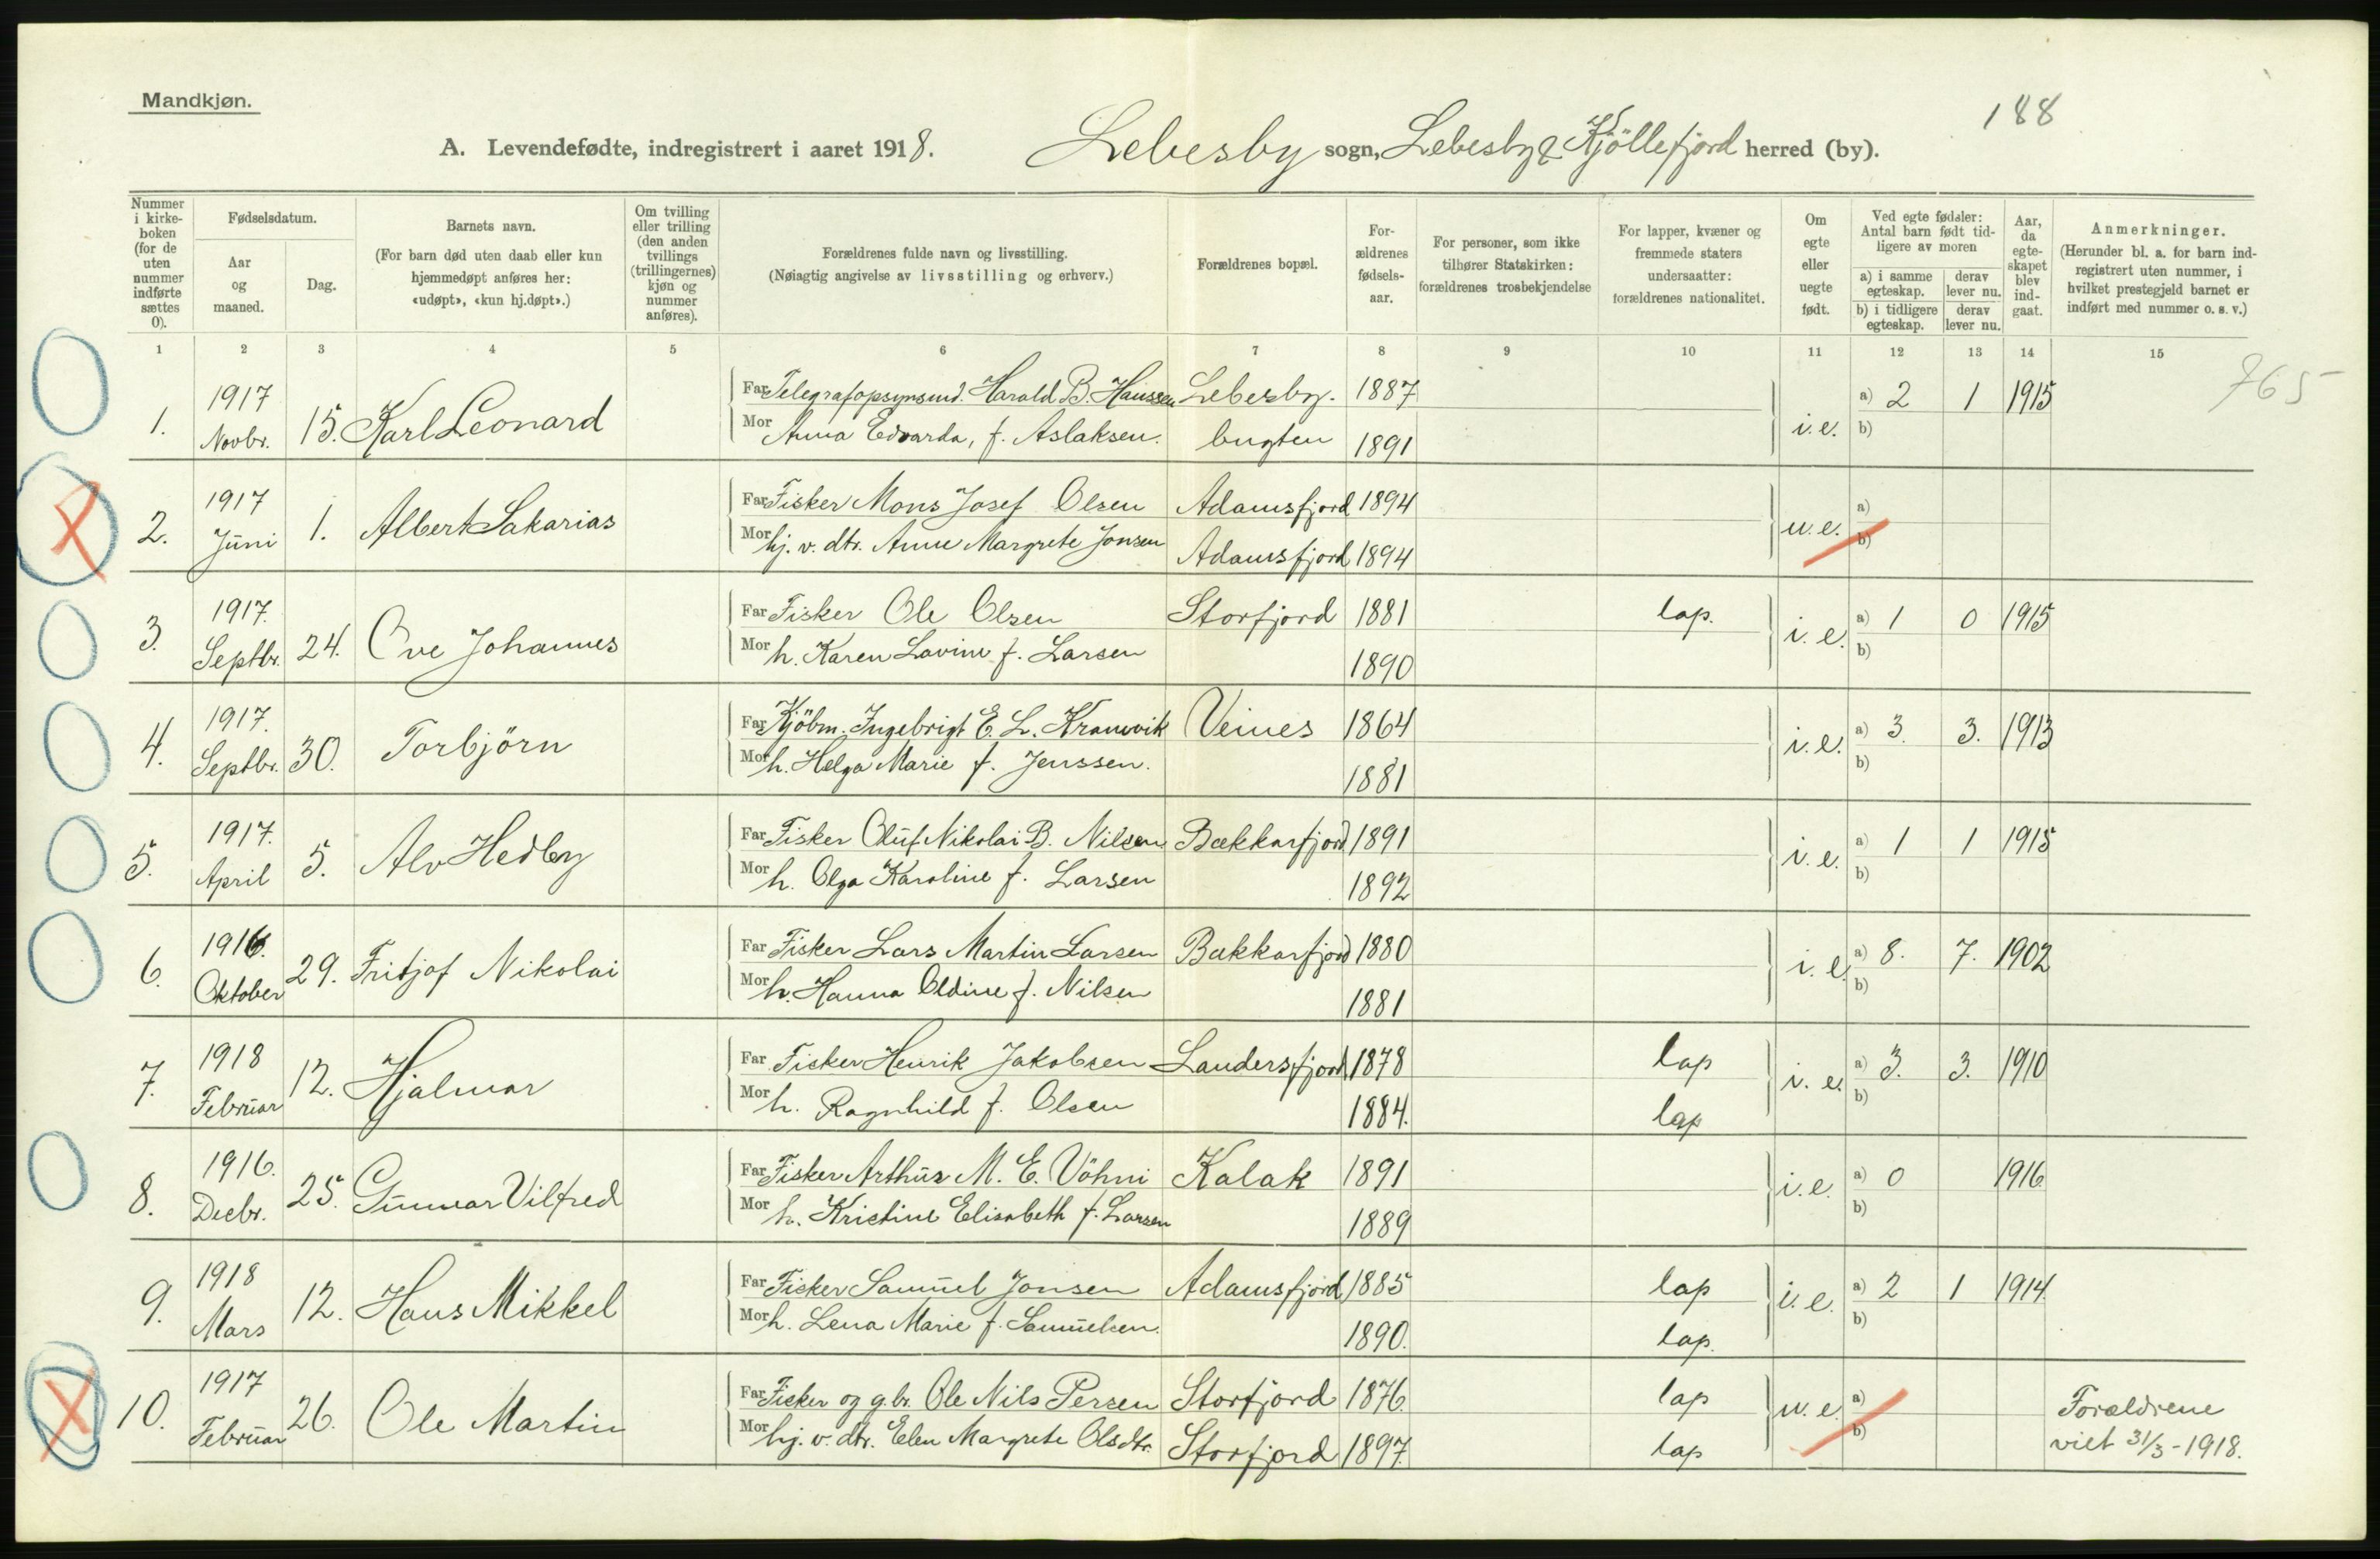 Mandkjøn.
188
A. Levendefødte, indregistrert i aaret 1918. Lebesby sogn, Lebesby & Kjöllefjord herred (by).
Nummer i kirke-boken (for de uten nummer indførte sættes 0).
Fødselsdatum.
Aar og maaned.
Dag.
Barnets navn.
(For barn død uten daab eller kun hjemmedøpt anføres her: «udøpt», «kun hj.døpt».)
Om tvilling eller trilling (den anden tvillings (trillingernes) kjøn og nummer anføres).
Forældrenes fulde navn og livsstilling.
(Nøiagtig angivelse av livsstilling og erhverv.)
Forældrenes bopæl.
For-ældrenes fødsels-aar.
For personer, som ikke tilhører Statskirken: forældrenes trosbekjendelse
For lapper, kvæner og fremmede staters undersaatter: forældrenes nationalitet.
Om egte eller uegte født.
Ved egte fødsler: Antal barn født tid-ligere av moren
a) i samme egteskap. derav lever nu.
b) i tidligere egteskap. derav lever nu.
Aar, da egte-skapet blev ind-gaat.
Anmerkninger.
(Herunder bl. a. for barn ind-registrert uten nummer, i hvilket prestegjeld barnet er indført med nummer o. s. v.)
1 2 3 4 5 6 7 8 9 10 11 12 13 14 15
765
1. 1917 Novbr. 15. Karl Leonard
Far Telegrafopsynsmd. Harald B. Hanssen Lebesby. 1887
Mor Anna Edvarda, f. Aslaksen. bugten 1891
i.e. a) 2 1 1915
b)
2. 1917 Juni 1. Albert Sakarias
Far Fisker Mons Josef Olsen Adamsfjord 1894
Mor hj. v. dtr. Anne Margrete Jonsen Adamsfjord 1894
u.e. a)
b)
3. 1917. Septbr. 24. Ove Johannes
Far Fisker Ole Olsen Storfjord 1881 lap.
Mor h. Karen Lovine f. Larsen 1890
i. e. a) 1 0 1915
b)
4. 1917. Septbr. 30. Torbjörn
Far Kjöbm. Ingebrigt E. L. Kramvik Veines 1864
Mor h. Helga Marie f. Jenssen. 1881
i.e. a) 3. 3. 1913
b)
5. 1917. April 5. Alv Hedley
Far Fisker Oluf Nikolai B. Nilsen Bekkarfjord 1891
Mor h. Olga Karoline f. Larsen 1892
i.e. a) 1 1 1915
b)
6. 1916. Oktober 29. Fritjof Nikolai
Far Fisker Lars Martin Larsen Bekkarfjord 1880
Mor h. Hanna Oldine f. Nilsen 1881
i. e. a) 8. 7. 1902
b)
7. 1918 Februar 12. Hjalmar
Far Fisker Henrik Jakobsen Landersfjord 1878 lap
Mor h. Ragnhild f. Olsen 1884. lap
i. e. a) 3. 3. 1910
b)
8. 1916. Decbr. 25. Gunnar Vilfred
Far Fisker Arthur M. E. Vöhni Kalak 1891
Mor h. Kristine Elisabeth f. Larsen 1889
i.e. a) 0 1916
b)
9. 1918 Mars 12. Hans Mikkel
Far Fisker Samuel Jonsen Adamsfjord 1885 lap
Mor h. Lena Marie f. Samuelsen. 1890. lap.
i. e. a) 2 1 1914.
b)
10. 1917 Februar 26. Ole Martin
Far Fisker og g.br. Ole Nils Persen Storfjord 1876. lap
Mor hj. v. dtr. Elen Margrete Olsdtr. Storfjord 1897. lap
u. e. a)
b)
Forældrene
viet 31/3-1918.